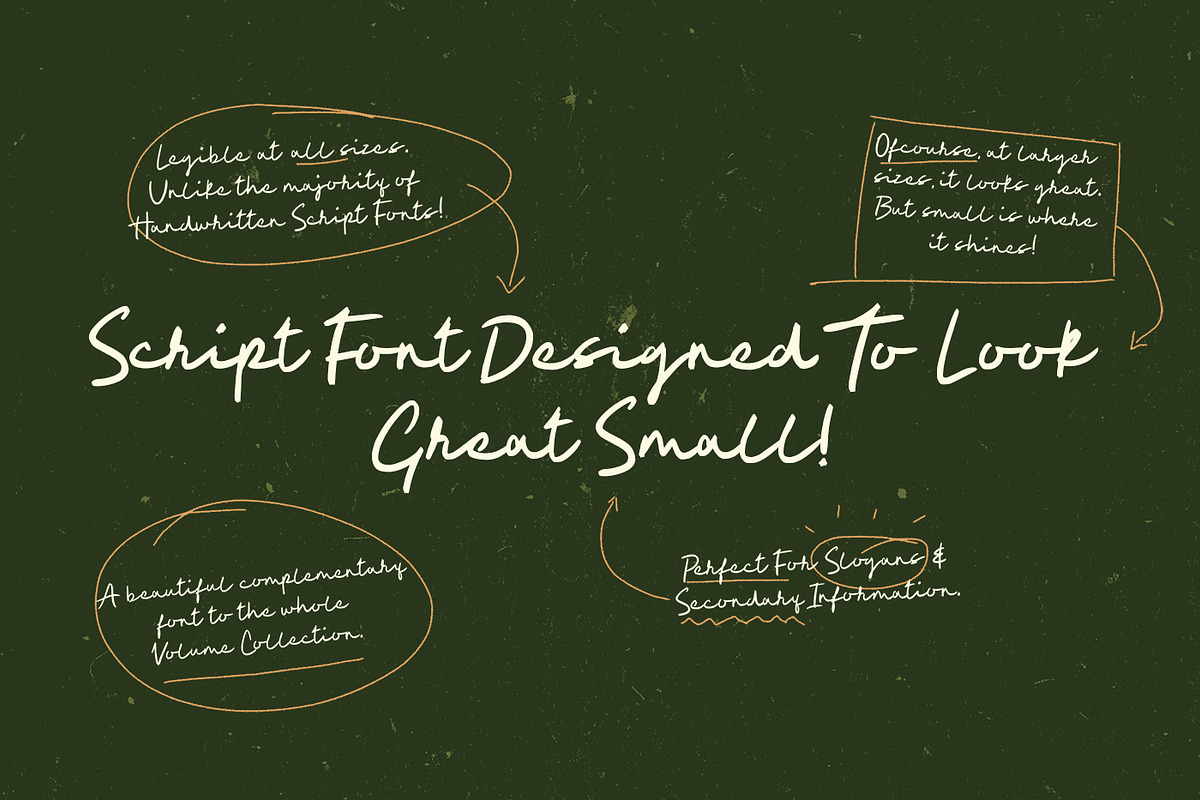 Legible at all sizes.
Unlike the majority of
Handwritten Script Fonts!
Ofcourse, at larger
sizes, it looks great.
But small is where
it shines!
Script Font Designed To Look
Great Small!
A beautiful complementary
font to the whole
Volume Collection.
Perfect For Slogans &
Secondary Information.